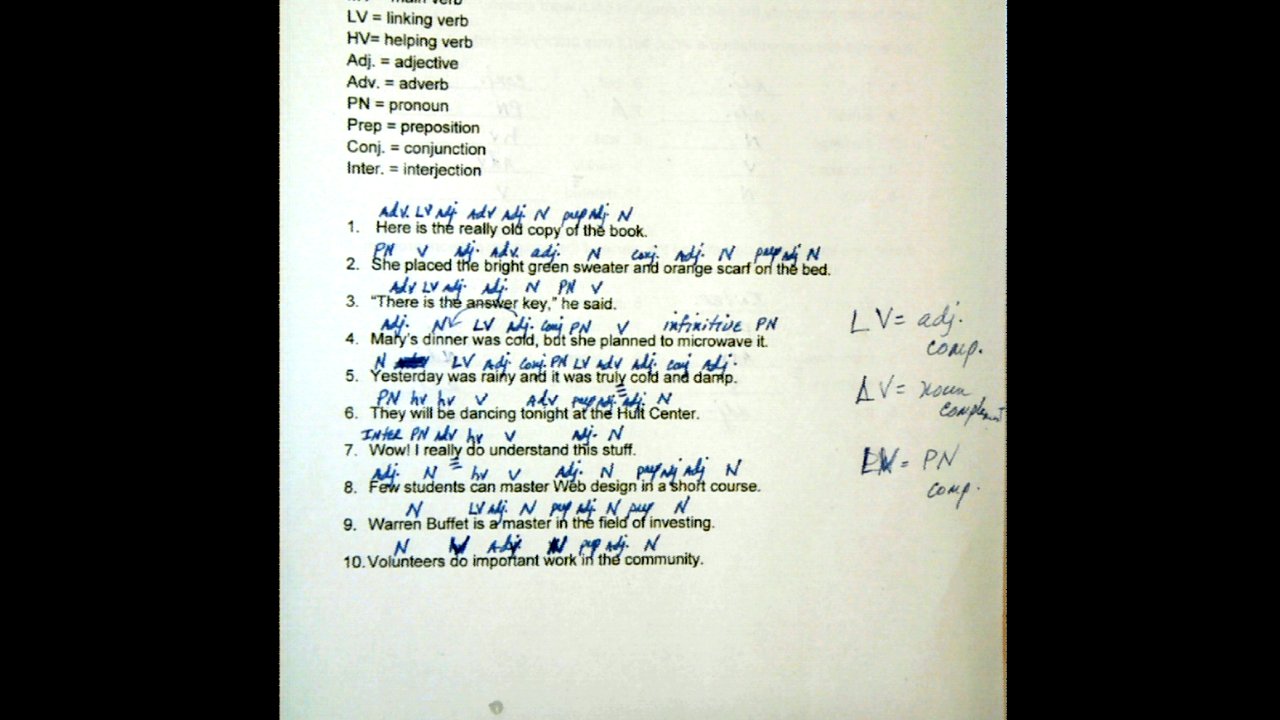 LV = linking verb
HV= helping verb
Adj. = adjective
Adv. = adverb
PN = pronoun
Prep = preposition
Conj. = conjunction
Inter. = interjection
Adv. LV Adj Adv Adj. N prep Adj. N
1. Here is the really old copy of the book.
PN V Adj. Adv. adj. N conj. Adj. N prep Adj N
2. She placed the bright green sweater and orange scarf on the bed.
Adv LV adj. Adj. N PN V
3. “There is the answer key,” he said.
Adj. N LV Adj. conj PN V infinitive PN
4. Mary's dinner was cold, but she planned to microwave it.
N LV Adj. conj. PN LV Adv Adj. conj Adj.
5. Yesterday was rainy and it was truly cold and damp.
PN hv hv V Adv prep Adj. Adj. N
6. They will be dancing tonight at the Hult Center.
Inter PN Adv hv V Adj. N
7. Wow! I really do understand this stuff.
Adj. N hv V Adj. N prep Adj Adj N
8. Few students can master Web design in a short course.
N LV Adj. N prep Adj. N prep N
9. Warren Buffet is a master in the field of investing.
N Adj. N prep Adj. N
10. Volunteers do important work in the community.
LV= adj.
comp.
LV= noun
complement
LV= PN
comp.